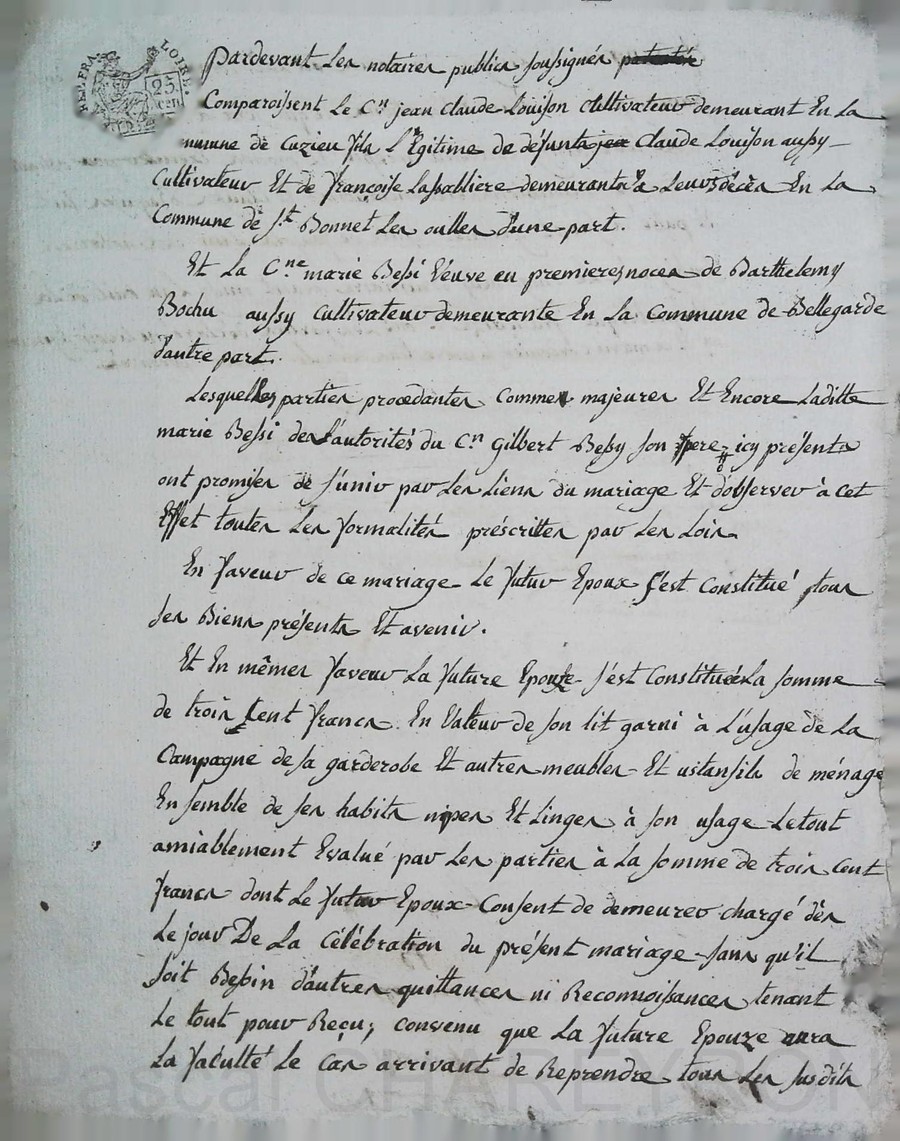 REP. FRA. LOIRE.
25 cen
Pardevant Les notaires publics soussignés
Comparoissent Le C.n jean Claude Louison Cultivateur demeurant En La
mmune de Cuzieu fils L'Egitime de défunt jean Claude Louison aussy
Cultivateur Et de françoise Lassabliere demeurants à Leurs décès En La
Commune de S.t Bonnet Les oulles d'une part.
Et La C.ne marie Bessi Veuve en premieres noces de Barthelemy
Bochu aussy Cultivateur demeurante En La Commune de Bellegarde
d'autre part.
Lesquelles parties procédantes Comme majeures Et Encore Laditte
marie Bessi de L'autorités du C.n Gilbert Bessy son pere icy présents
ont promises de s'unir par Les Liens du mariage Et d'observer à cet
Effet toutes Les formalités préscrittes par Les Loix
En faveur de ce mariage Le futur Epoux s'est Constitué tous
ses Biens présents Et avenir.
Et En mêmes faveur La future Epouse s'est Constituée La somme
de trois Cent francs En Valeur de son lit garni à L'usage de La
Campagne de sa garderobe Et autres meubles Et ustansils de ménage
En semble de ses habits nipes Et Linges à son usage Le tout
amiablement Evalué par Les parties à La somme de trois Cent
francs dont Le futur Epoux Consent de demeurer chargé dès
Le jour De La Célébration du présent mariage sans qu'il
soit Besoin d'autres quittances ni Reconnoissances tenant
Le tout pour Reçu, convenu que La future Epouze aura
La faculté Le Cas arrivant de Reprendre tous Les susdits
Pascal CHAREYRON